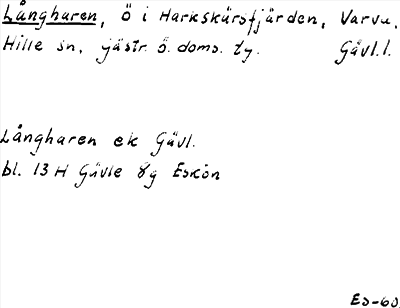 Långharen, ö i Harkskärsfjärden, Varva,
Hille sn, jästr. ö. doms. ty. Gävl.l.
Långharen ek Gävl.
bl. 13 H Gävle 8g Eskön
ES-60